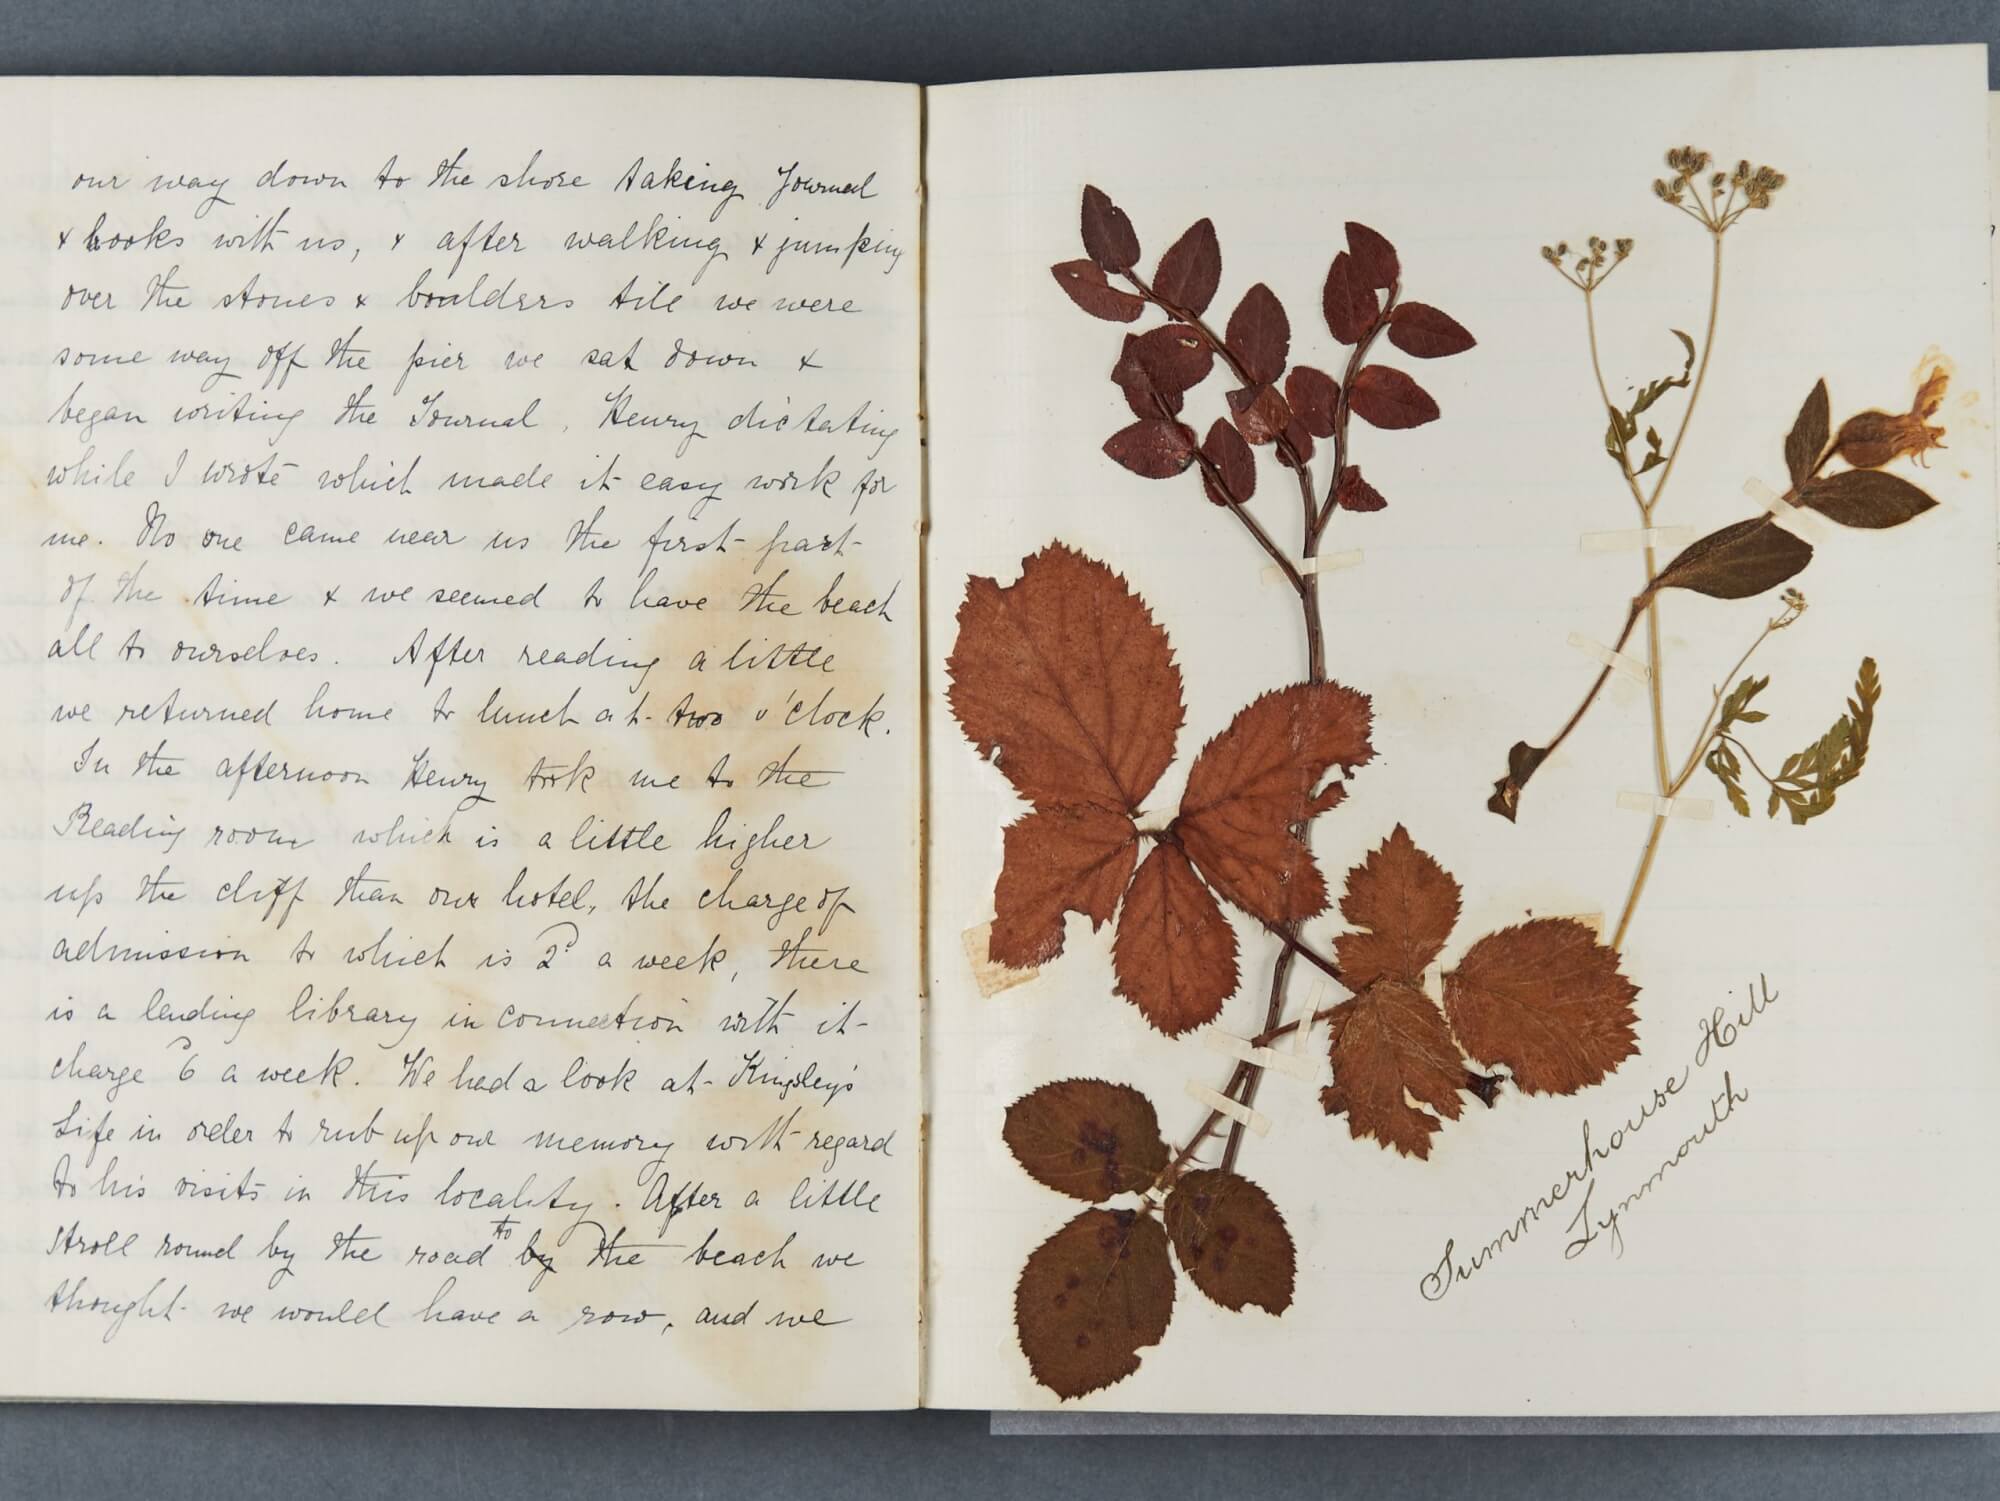 our way down to the shore taking Journal
& books with us, & after walking & jumping
over the stones & boulders till we were
some way off the pier we sat down &
began writing the Journal, Henry dictating
while I wrote which made it easy work for
me. No one came near us the first part
of the time & we seemed to have the beach
all to ourselves. After reading a little
we returned home to lunch at two o'clock.
In the afternoon Henry took me to the
Reading room which is a little higher
up the cliff than our hotel, the charge of
admission to which is 2ᵈ a week, there
is a lending library in connection with it
charge ᵈ6 a week. We had a look at Kingsley's
Life in order to rub up our memory with regard
to his visits in this locality. After a little
stroll round by the road to by the beach we
thought we would have a row, and we
Summerhouse Hill
Lynmouth